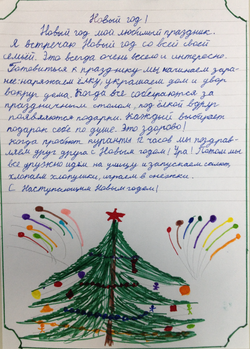 Новый год!
Новый год мой любимый праздник.
Я встречаю Новый год со всей своей
семьей. Это всегда очень весело и интересно.
Готовиться к празднику мы начинаем зара-
нее: наряжаем ёлку, украшаем дом и двор
вокруг дома. Когда все собираются за
праздничным столом, под ёлкой вдруг
появляются подарки. Каждый выбирает
подарок себе по душе. Это здорово!
Когда пробьют куранты 12 часов мы поздрав-
ляем друг друга с Новым годом! Ура! Потом мы
все дружно идем на улицу и запускаем салют,
хлопаем хлопушки, играем в снежки.
С Наступающим Новым годом!